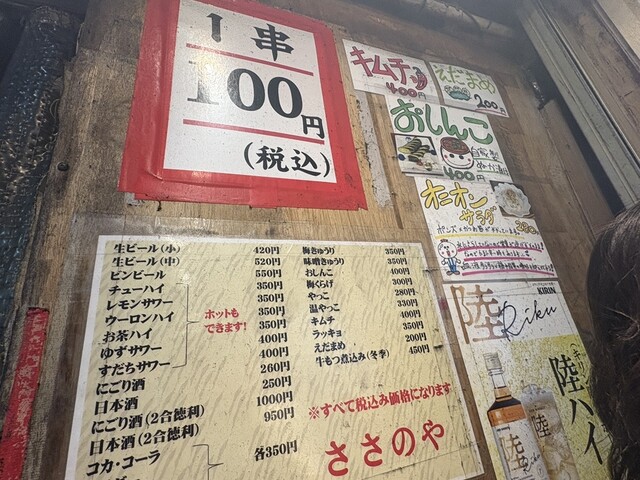 1串
100円
(税込)
キムチ
400円
えだまめ
200円
おしんこ
自家製
ぬか漬け
400円
オニオン
サラダ
生ビール(小) 420円
生ビール(中) 520円
ビンビール 550円
チューハイ 350円
レモンサワー 350円
ウーロンハイ 350円
お茶ハイ 350円
ゆずサワー 400円
すだちサワー 400円
ホットも
できます!
にごり酒 260円
日本酒 250円
にごり酒(2合徳利) 1000円
日本酒(2合徳利) 950円
コカ・コーラ 各350円
梅きゅうり 350円
味噌きゅうり 350円
おしんこ 400円
梅くらげ 300円
やっこ 280円
温やっこ 330円
キムチ 400円
ラッキョ 350円
えだまめ 200円
牛もつ煮込み(冬季) 450円
※すべて税込み価格になります
ささのや
KIRIN
陸 Riku
陸ハイ
陸